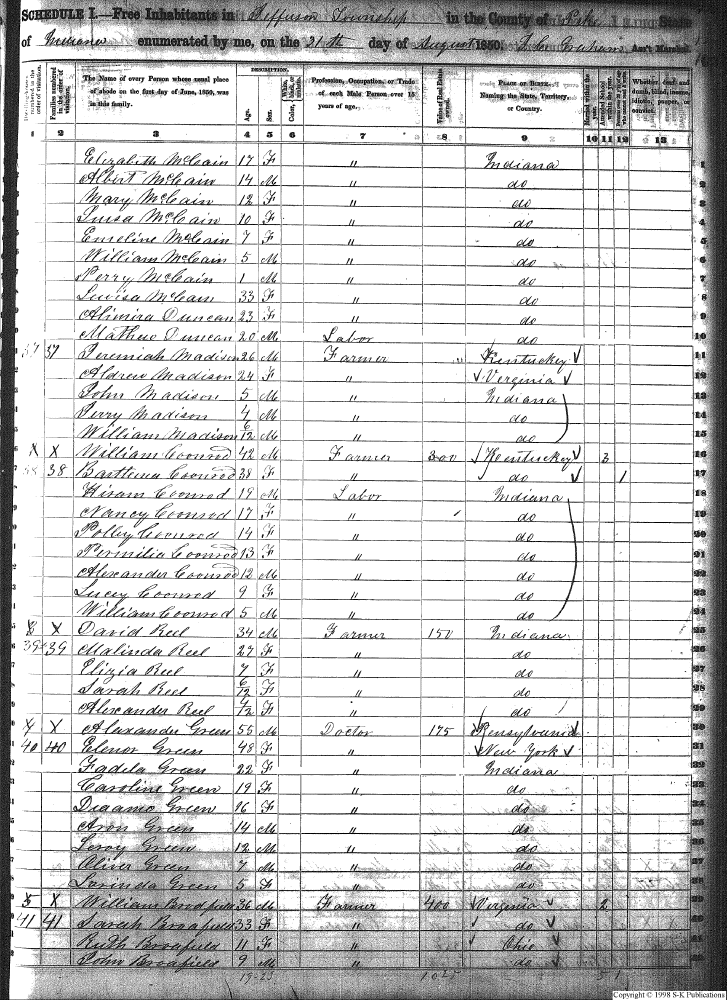 SCHEDULE I.—Free Inhabitants in Jefferson Township in the County of Pike State
of Indiana enumerated by me, on the 21th day of August 1850. Ass't Marshal.
DESCRIPTION.
The Name of every Person whose usual place of abode on the first day of June, 1850, was in this family.
Age. Sex.
Profession, Occupation, or Trade of each Male Person over 15 years of age.
PLACE OF BIRTH. Naming the State, Territory, or Country.
1 2 3 4 5 6 7 8 9 10 11 12 13
Elizabeth McCain 17 F " Indiana 1
Albert McCain 14 M " do 2
Mary McCain 12 F " do 3
Luisa McCain 10 F " do 4
Emeline McCain 7 F " do 5
William McCain 5 M " do 6
Perry McCain 1 M " do 7
Luvisa McCain 33 F " do 8
Almira Duncan 23 F " do 9
Mathew Duncan 20 M Labor do 10
37 37 Jeremiah Madison 26 M Farmer " Kentucky 11
Aldrew Madison 24 F " Virginia 12
John Madison 5 M " Indiana 13
Perry Madison 4 M " do 14
William Madison 6/12 M " do 15
X X William Coonrod 42 M Farmer 300 Kentucky 3 16
38 38 Barthena Coonrod 38 F " do 1 17
Hiram Coonrod 19 M Labor Indiana 18
Nancy Coonrod 17 F " do 19
Polley Coonrod 14 F " do 20
Permilia Coonrod 13 F " do 21
Alexander Coonrod 12 M " do 22
Lucey Coonrod 9 F " do 23
William Coonrod 5 M " do 24
X X David Reel 34 M Farmer 150 Indiana 25
39 39 Malinda Reel 27 F " do 26
Elizia Reel 7 F " do 27
Sarah Reel 6/12 F " do 28
Alexander Reel 4/12 F " do 29
X X Alexander Green 55 M Doctor 175 Pensylvania 30
40 40 Elenor Green 48 F " New York 31
Fadela Green 22 F " Indiana 32
Caroline Green 19 F " do 33
Degamo Green 16 F " do 34
Aron Green 14 M " do 35
Leroy Green 12 M " do 36
Oliver Green 7 M " do 37
Lorinda Green 5 F " do 38
X X William Broafield 36 M Farmer 400 Virginia 2 39
41 41 Sarah Broafield 33 F " do 40
Ruth Broafield 11 F " Ohio 41
John Broafield 9 M " do 42
19-23 1025 5 1
Copyright © 1998 S-K Publications